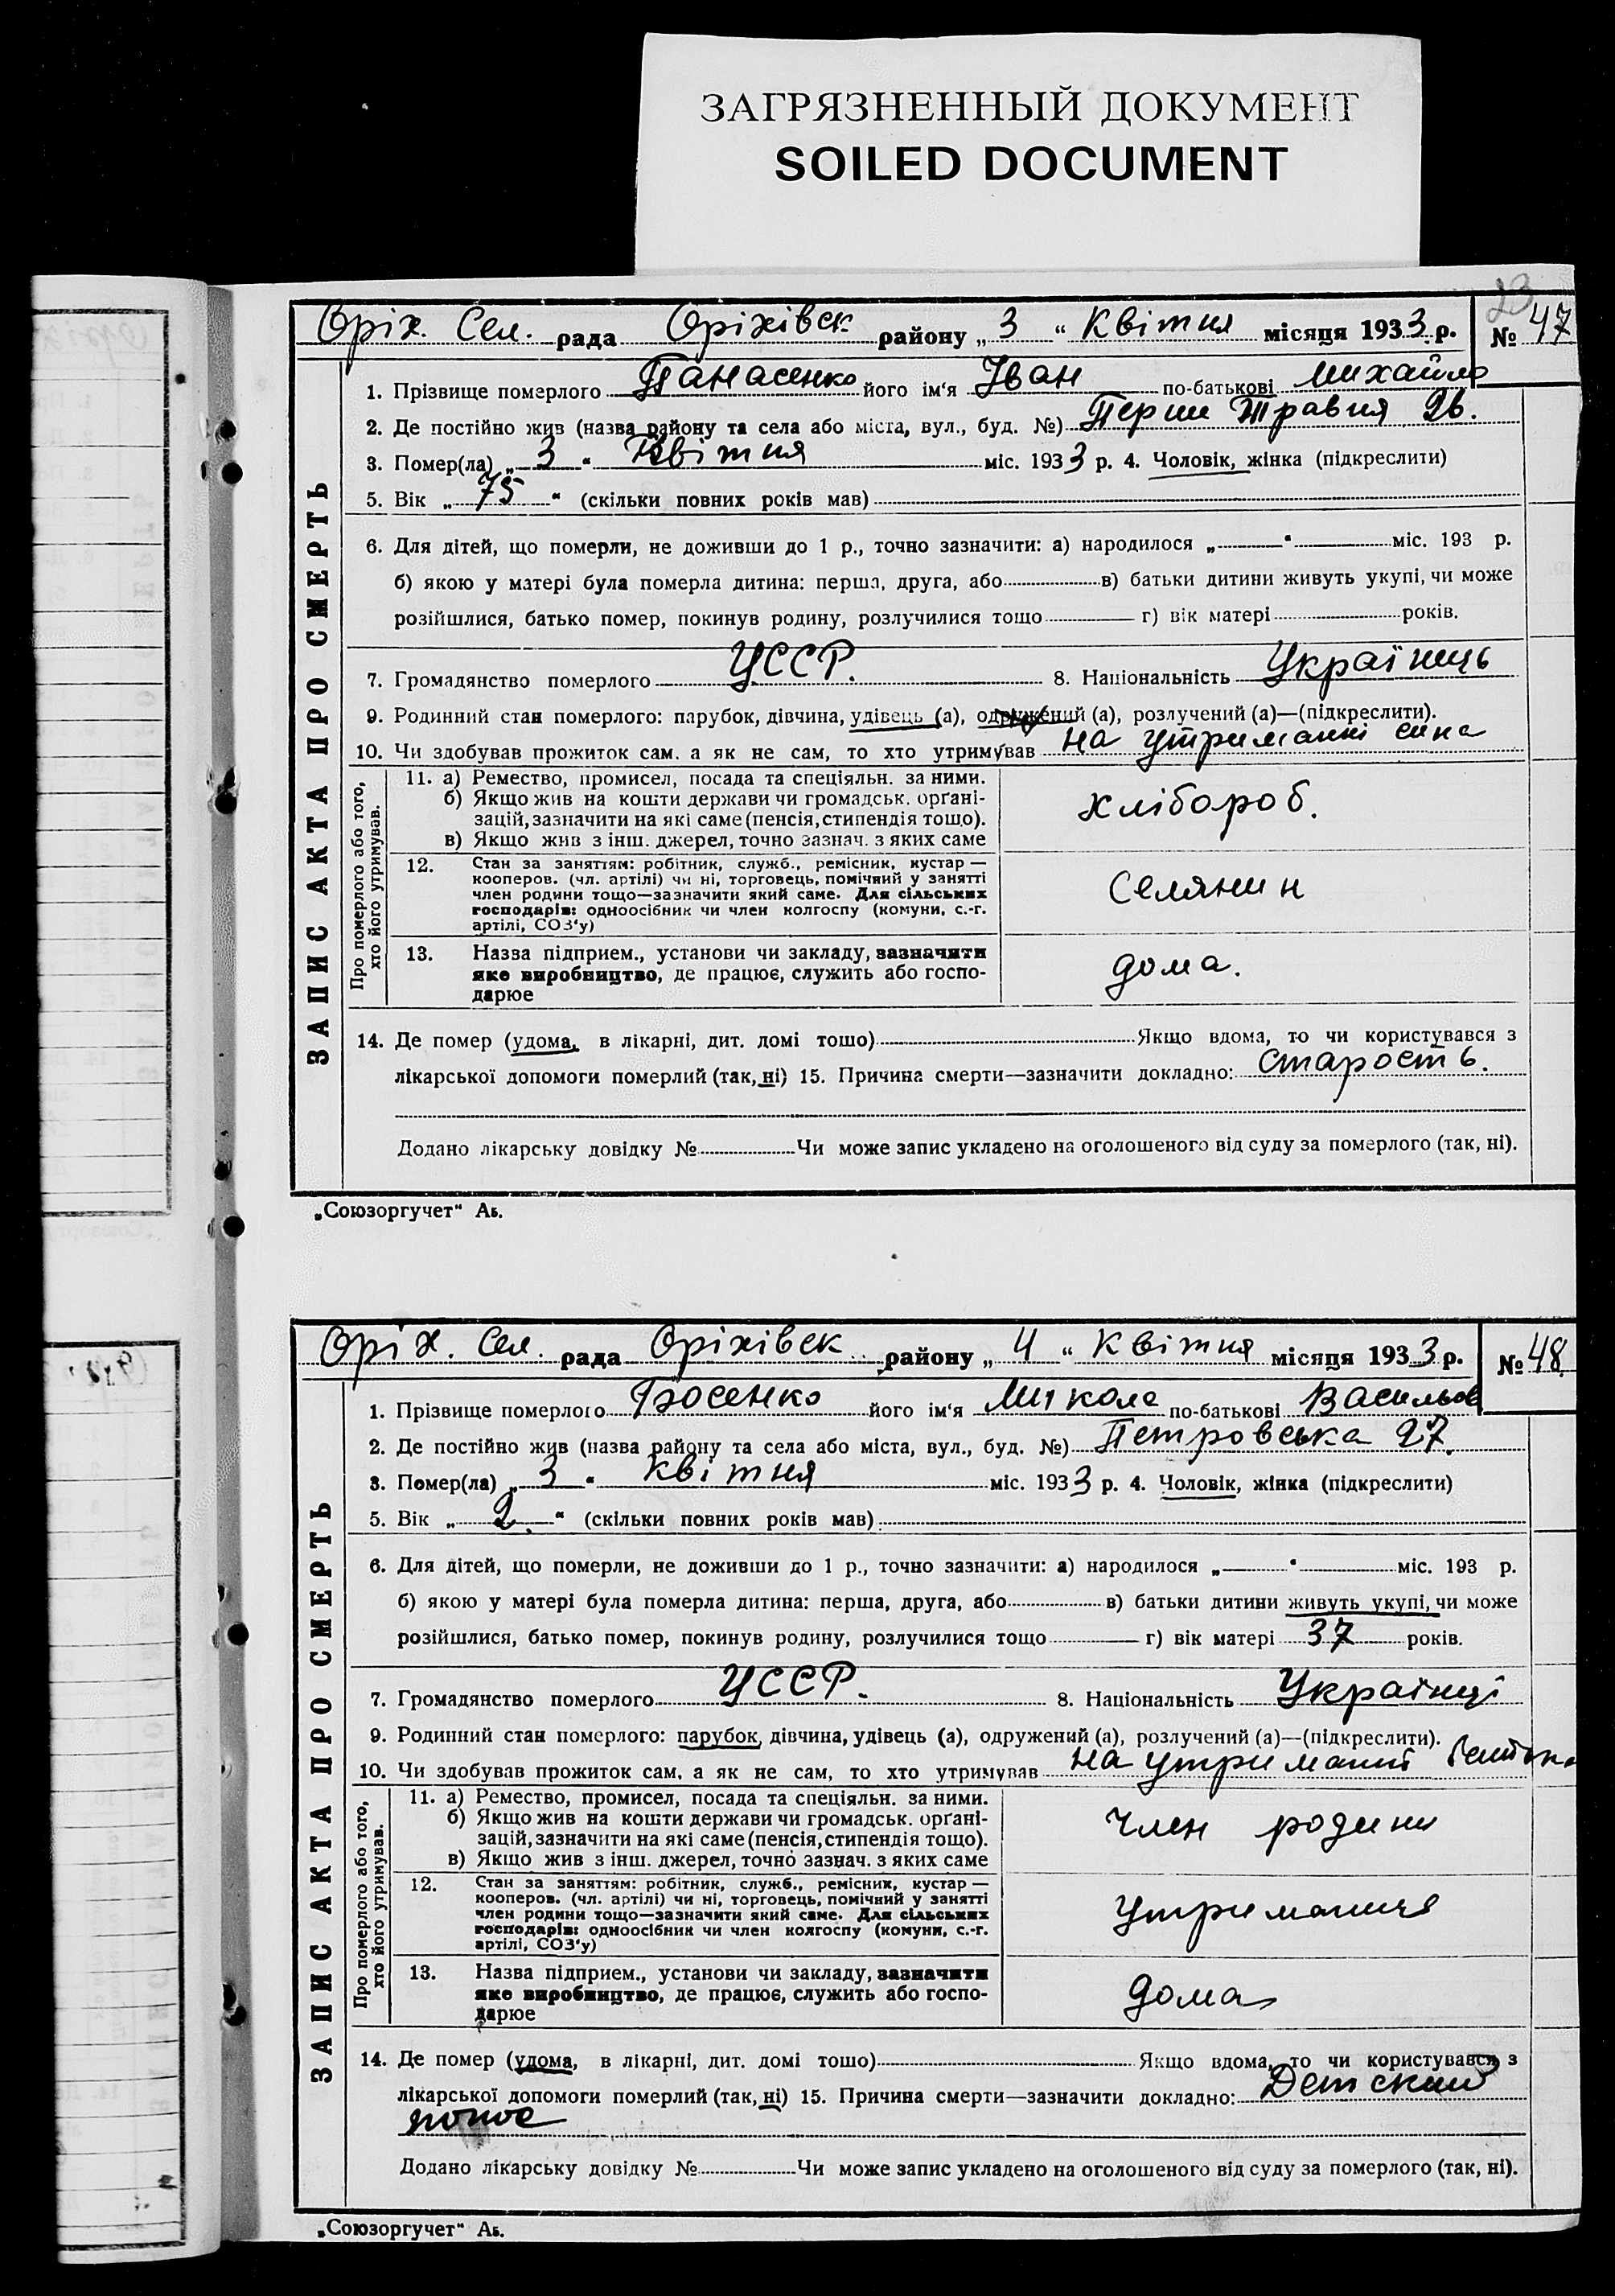 ЗАГРЯЗНЕННЫЙ ДОКУМЕНТ
SOILED DOCUMENT
23
Оріх. Сел. рада Оріхівск району „ 3 “ Квітня місяця 1933 р. № 47
ЗАПИС АКТА ПРО СМЕРТЬ
1. Прізвище померлого Панасенко його ім'я Іван по-батькові Михайло
2. Де постійно жив (назва району та села або міста, вул., буд. №) Перше Травня 26.
3. Помер(ла) „ 3 “ Квітня міс. 1933 р. 4. Чоловік, жінка (підкреслити)
5. Вік „ 75 “ (скільки повних років мав)
6. Для дітей, що померли, не доживши до 1 р., точно зазначити: а) народилося „ “ міс. 193 р.
б) якою у матері була померла дитина: перша, друга, або в) батьки дитини живуть укупі, чи може
розійшлися, батько помер, покинув родину, розлучилися тощо г) вік матері років.
7. Громадянство померлого УССР. 8. Національність Українць
9. Родинний стан померлого: парубок, дівчина, удівець (а), одружений (а), розлучений (а)—(підкреслити).
10. Чи здобував прожиток сам. а як не сам, то хто утримував на утриманні сина
Про померлого або того, хто його утримував.
11. а) Ремество, промисел, посада та спеціяльн. за ними.
б) Якщо жив на кошти держави чи громадськ. органі-
зацій, зазначити на які саме (пенсія, стипендія тощо).
в) Якщо жив з інш. джерел, точно зазнач. з яких саме
хлібороб.
12. Стан за заняттям: робітник, служб., ремісник, кустар —
кооперов. (чл. артілі) чи ні, торговець, помічний у занятті
член родини тощо—зазначити який саме. Для сільських
господарів: одноосібник чи член колгоспу (комуни, с.-г.
артілі, СОЗ'у)
Селянин
13. Назва підприєм., установи чи закладу, зазначити
яке виробництво, де працює, служить або госпо-
дарює
дома.
14. Де помер (удома, в лікарні, дит. домі тощо) Якщо вдома, то чи користувався з
лікарської допомоги померлий (так, ні) 15. Причина смерти—зазначити докладно: старость.
Додано лікарську довідку № Чи може запис укладено на оголошеного від суду за померлого (так, ні).
„Союзоргучет“ Аб.
Оріх. Сел. рада Оріхівск району „ 4 “ Квітня місяця 1933 р. № 48
ЗАПИС АКТА ПРО СМЕРТЬ
1. Прізвище померлого Босенко його ім'я Микола по-батькові Васильов
2. Де постійно жив (назва району та села або міста, вул., буд. №) Петровська 27.
3. Помер(ла) „ 3 “ Квітня міс. 1933 р. 4. Чоловік, жінка (підкреслити)
5. Вік „ 2. “ (скільки повних років мав)
6. Для дітей, що померли, не доживши до 1 р., точно зазначити: а) народилося „ “ міс. 193 р.
б) якою у матері була померла дитина: перша, друга, або в) батьки дитини живуть укупі, чи може
розійшлися, батько помер, покинув родину, розлучилися тощо г) вік матері 37 років.
7. Громадянство померлого УССР. 8. Національність Українці
9. Родинний стан померлого: парубок, дівчина, удівець (а), одружений (а), розлучений (а)—(підкреслити).
10. Чи здобував прожиток сам, а як не сам, то хто утримував на утриманні
Про померлого або того, хто його утримував.
11. а) Ремество, промисел, посада та спеціяльн. за ними.
б) Якщо жив на кошти держави чи громадськ. органі-
зацій, зазначити на які саме (пенсія, стипендія тощо).
в) Якщо жив з інш. джерел, точно зазнач. з яких саме
Член родини
12. Стан за заняттям: робітник, служб., ремісник, кустар —
кооперов. (чл. артілі) чи ні, торговець, помічний у занятті
член родини тощо—зазначити який саме. Для сільських
господарів: одноосібник чи член колгоспу (комуни, с.-г.
артілі, СОЗ'у)
утримання
13. Назва підприєм., установи чи закладу, зазначити
яке виробництво, де працює, служить або госпо-
дарює
дома
14. Де помер (удома, в лікарні, дит. домі тощо) Якщо вдома, то чи користувався з
лікарської допомоги померлий (так, ні) 15. Причина смерти—зазначити докладно: Детский
понос
Додано лікарську довідку № Чи може запис укладено на оголошеного від суду за померлого (так, ні).
„Союзоргучет“ Аб.